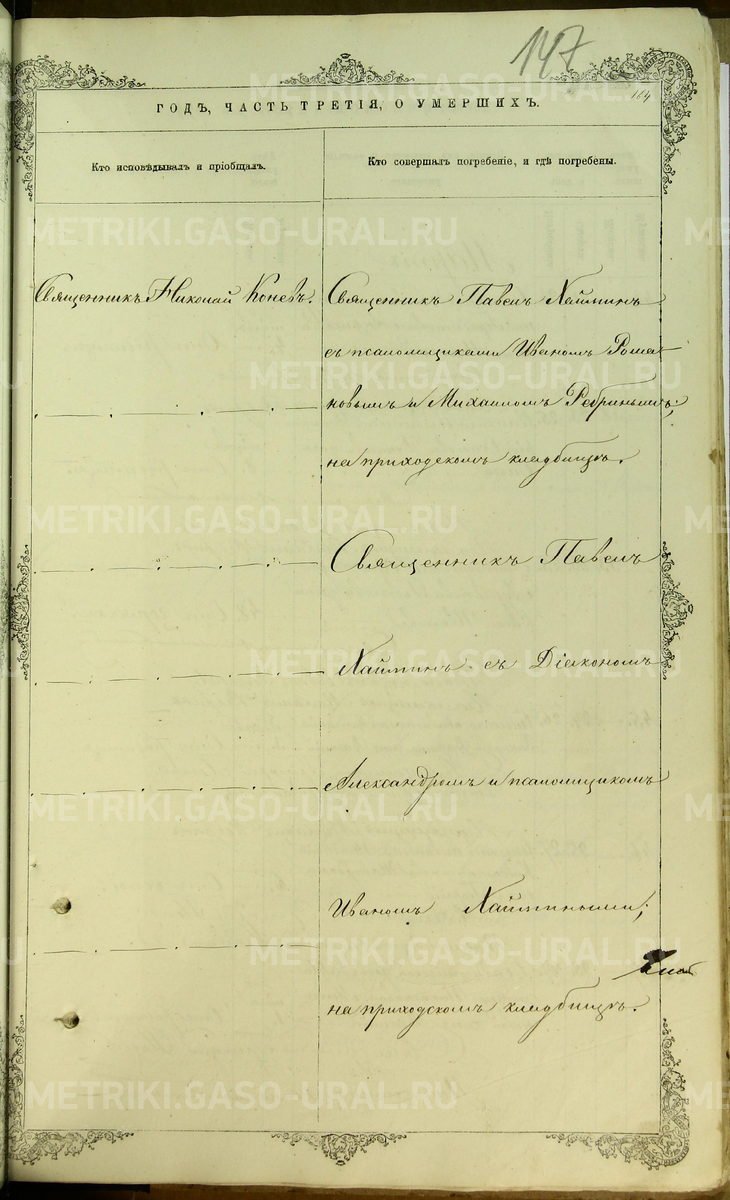 147
164
ГОДЪ, ЧАСТЬ ТРЕТІЯ, О УМЕРШИХЪ.
Кто исповѣдывалъ и пріобщалъ.
Кто совершалъ погребеніе, и гдѣ погребены.
Священникъ Николай Коневъ.
Священникъ Павелъ Хаймин
съ псаломщиками Иваномъ Рома-
новымъ и Михаиломъ Ребринымъ;
на приходскомъ кладбищѣ.
Священникъ Павелъ
Хайминъ съ Діакономъ
Александромъ и псаломщикомъ
Иваномъ Хаймиными;
на приходскомъ кладбищѣ.
METRIKI.GASO-URAL.RU